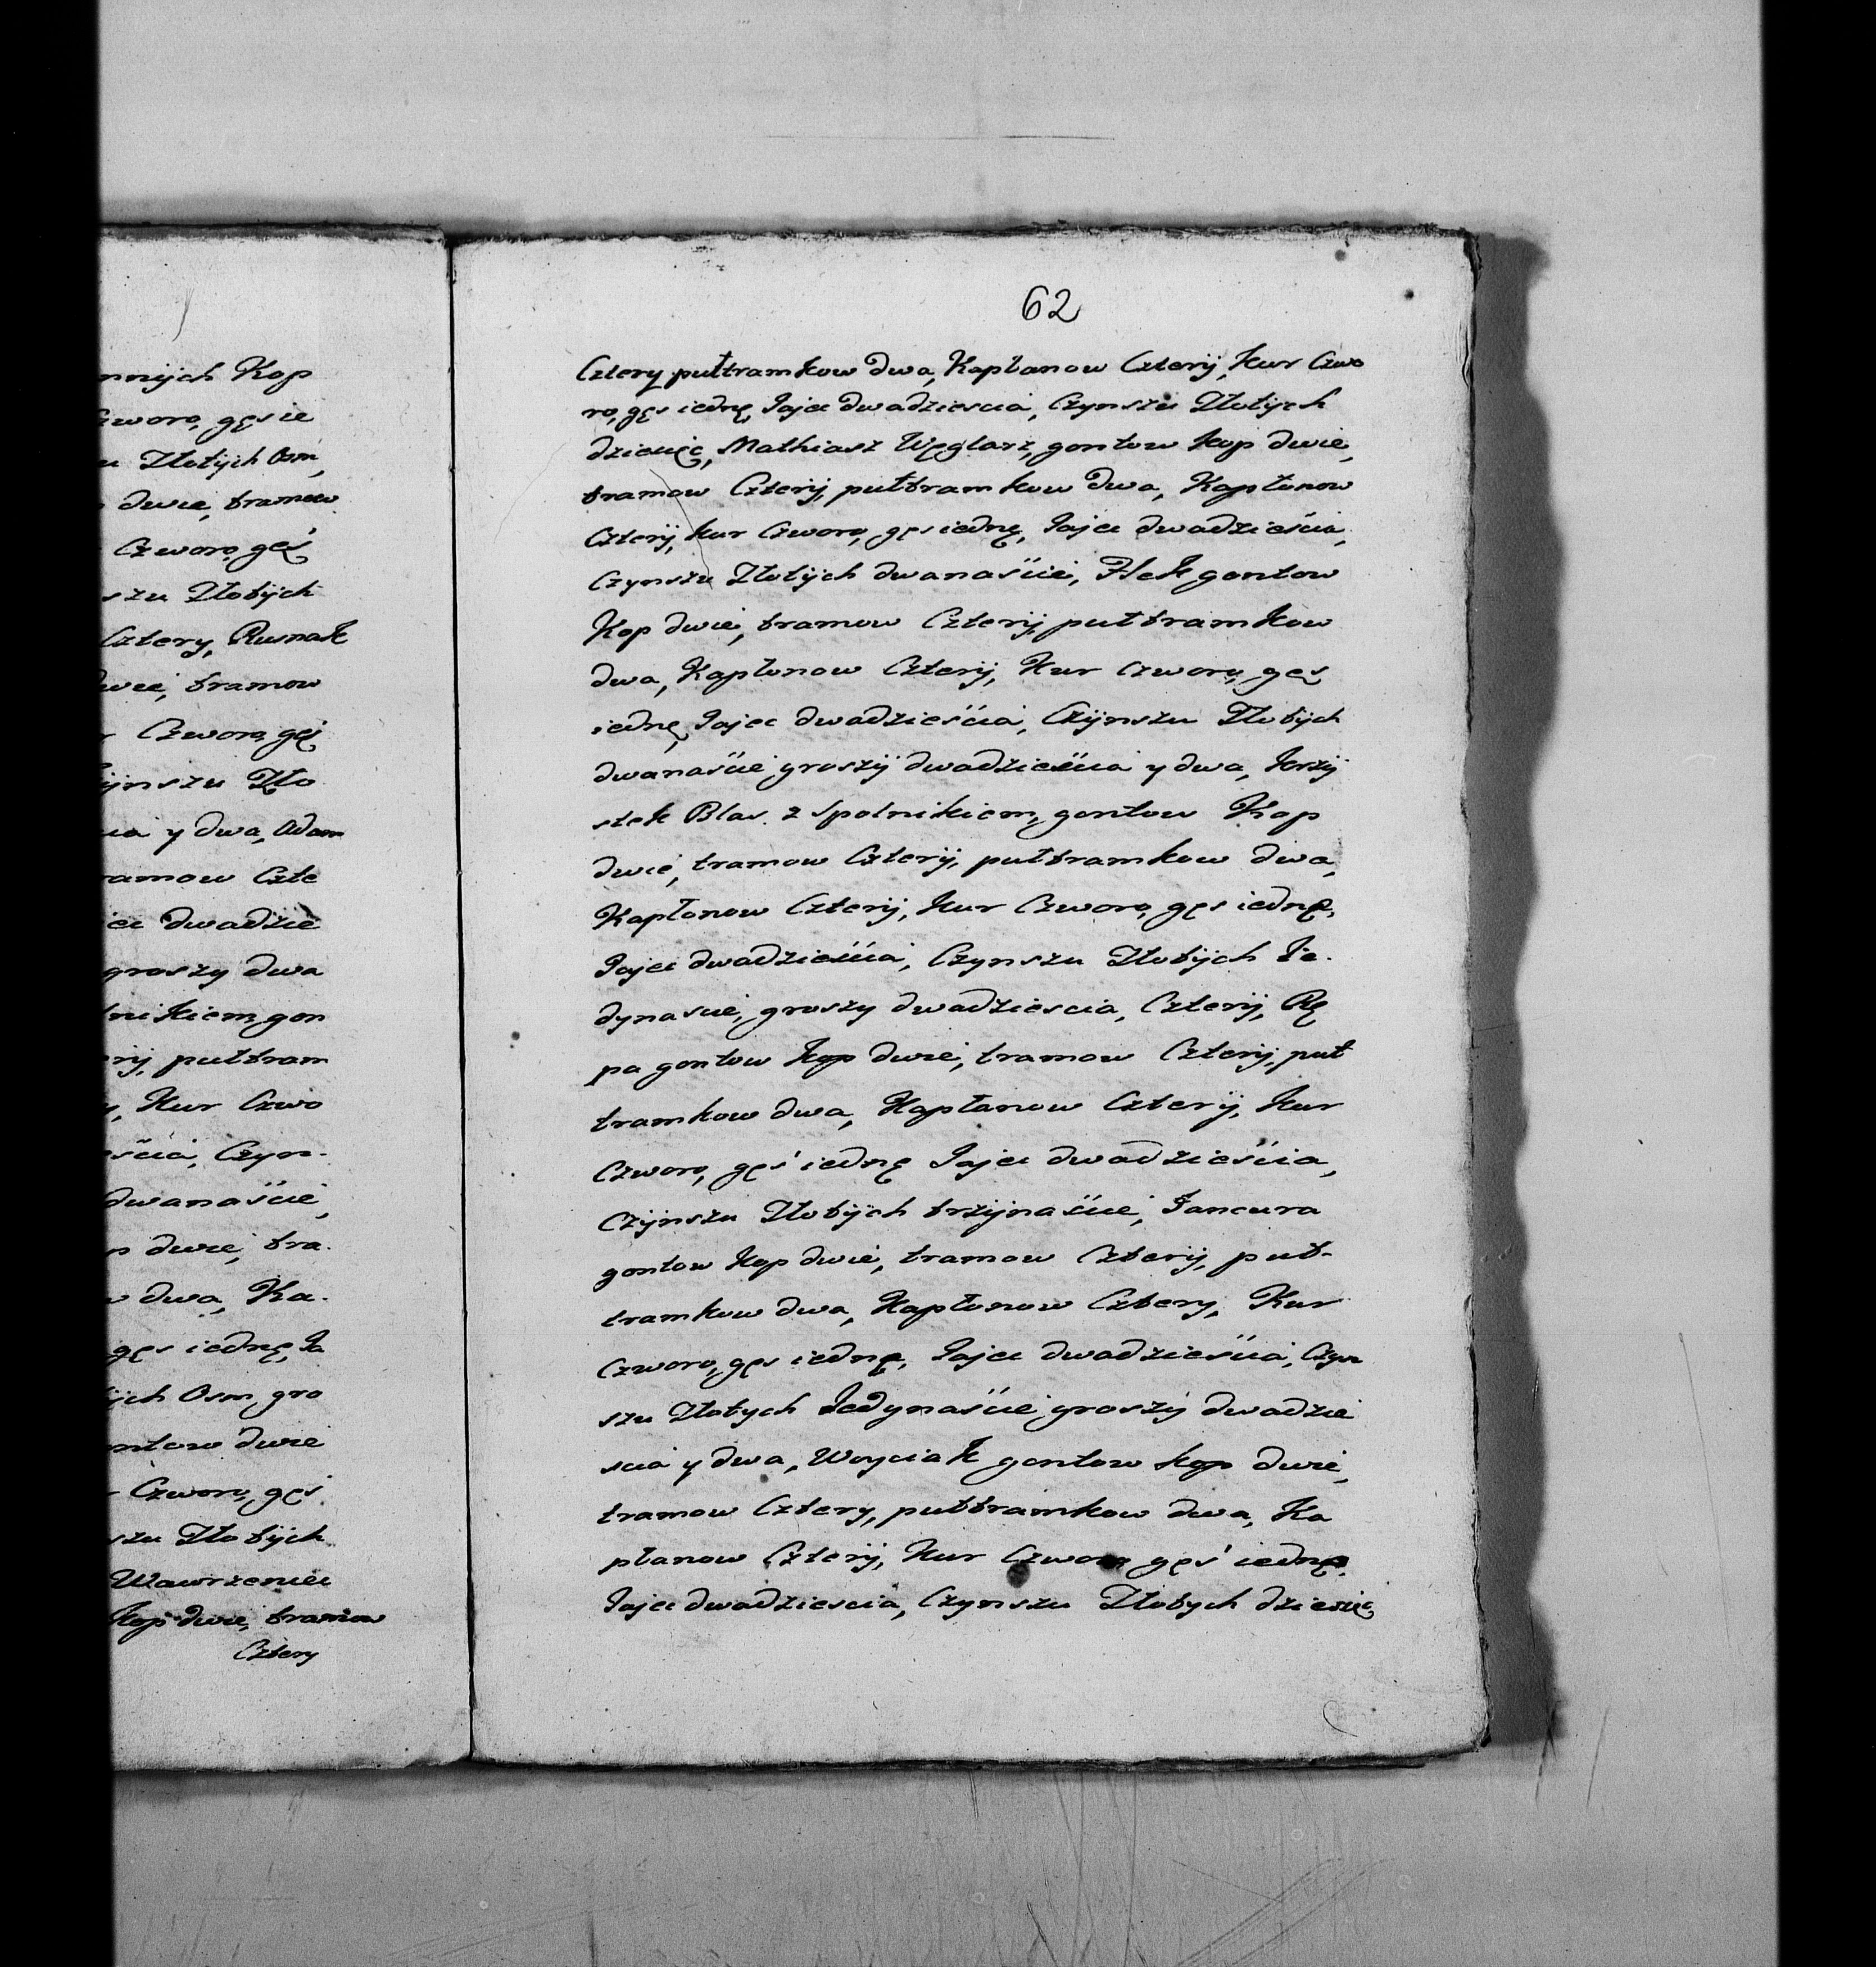 nnijch Kop
zworo, gęs ie
u Złotijch Osm,
dwie, tramow
Czworo, gęś
szu Złotijch
Cztery, Rusnak
dwie, tramow
Czworo, gęś
ijnszu Zło
cia y dwa, Adam
ramow Czte
iec dwadzie
groszy dwa
lnikiem gon
rij, pułtram
Kur Czwo
ścia, Czyn-
dwanaście,
p dwie, tra-
w dwa, Ka-
gęs iednę, Ja
ijch Osm, gro
ontow dwie
Czworo, gęś
szu Złotijch
Wawrzeniec
Kop dwie, tramow
Cztery
62
Cztery pułtramkow dwa, Kapłanow Czterij, Kur Czwo
ro, gęs iednę, Jajec dwadziescia, Czynszu Złotych
dziewięć, Mathiasz Węglarz, gontow Kop dwie,
tramow Czterij, pułtramkow dwa, Kapłonow
Czterij, Kur Czworo, gęs iednę, Jajec dwadzieścia,
Czynszu Złotijch dwanaście, Flek gontow
Kop dwie, tramow Czterij, pułtramkow
dwa, Kapłonow Czterij, Kur Czworo, gęs
iednę, Jajec dwadzieścia, Czijnszu Złotijch
dwanaście groszij dwadzieścia y dwa, Krzij
stek Blas. z Spolnikiem, gontow Kop
dwie, tramow Czterij, pułtramkow dwa,
Kapłonow Czterij, Kur Czworo, gęs iednę,
Jajec dwadzieścia, Czynszu Złotijch Je-
dynascie, groszy dwadziescia, Czterij, Rę
pa gontow Kop dwie, tramow Czterij, puł
tramkow dwa, Kapłanow Czterij, Kur
Czworo, gęś iednę Jajec dwadzieścia,
Czijnszu Złotijch trzijnaście, Jancura
gontow Kop dwie, tramow Czterij, puł-
tramkow dwa, Kapłonow Cztery, Kur
Czworo, gęs iednę, Jajec dwadzieścia, Czyn
szu Złotych Jedynaście groszÿ dwadzie
scia y dwa, Woyciak gontow Kop dwie,
tramow Cztery, pułtramkow dwa, Ka
płanow Czterij, Kur Czworo gęś iednę,
Jajec dwadziescia, Czynszu Złotych dziesięć